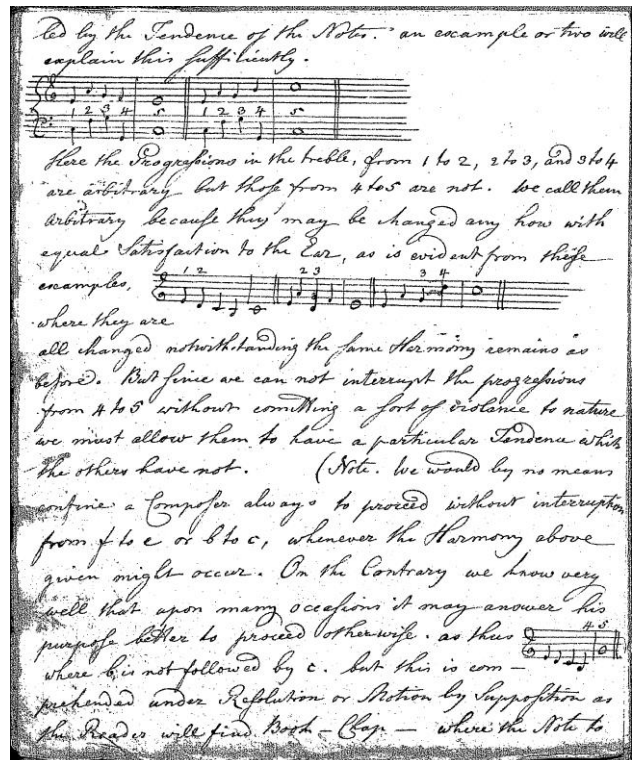 led by the Tendence of the Notes. an example or two will
explain this sufficiently.
1 2 3 4 5 1 2 3 4 5
Here the Progressions in the treble, from 1 to 2, 2 to 3, and 3 to 4
are arbitrary but those from 4 to 5 are not. We call them
arbitrary because they may be changed any how with
equal Satisfaction to the Ear, as is evident from these
examples, 1 2 2 3 3 4
where they are
all changed notwithstanding the same Harmony remains as
before. But since we can not interrupt the progressions
from 4 to 5 without comitting a sort of violance to nature
we must allow them to have a particular Tendence which
the others have not. (Note. We would by no means
confine a Composer always to proceed without interruption
from f to e or b to c, whenever the Harmony above
given might occur. On the Contrary we know very
well that upon many occasions it may answer his
purpose better to proceed otherwise. as thus 4 5
where b is not followed by c. but this is com-
prehended under Resolution or Motion by Supposition as
the Reader will find Book - Chap - where the Note to